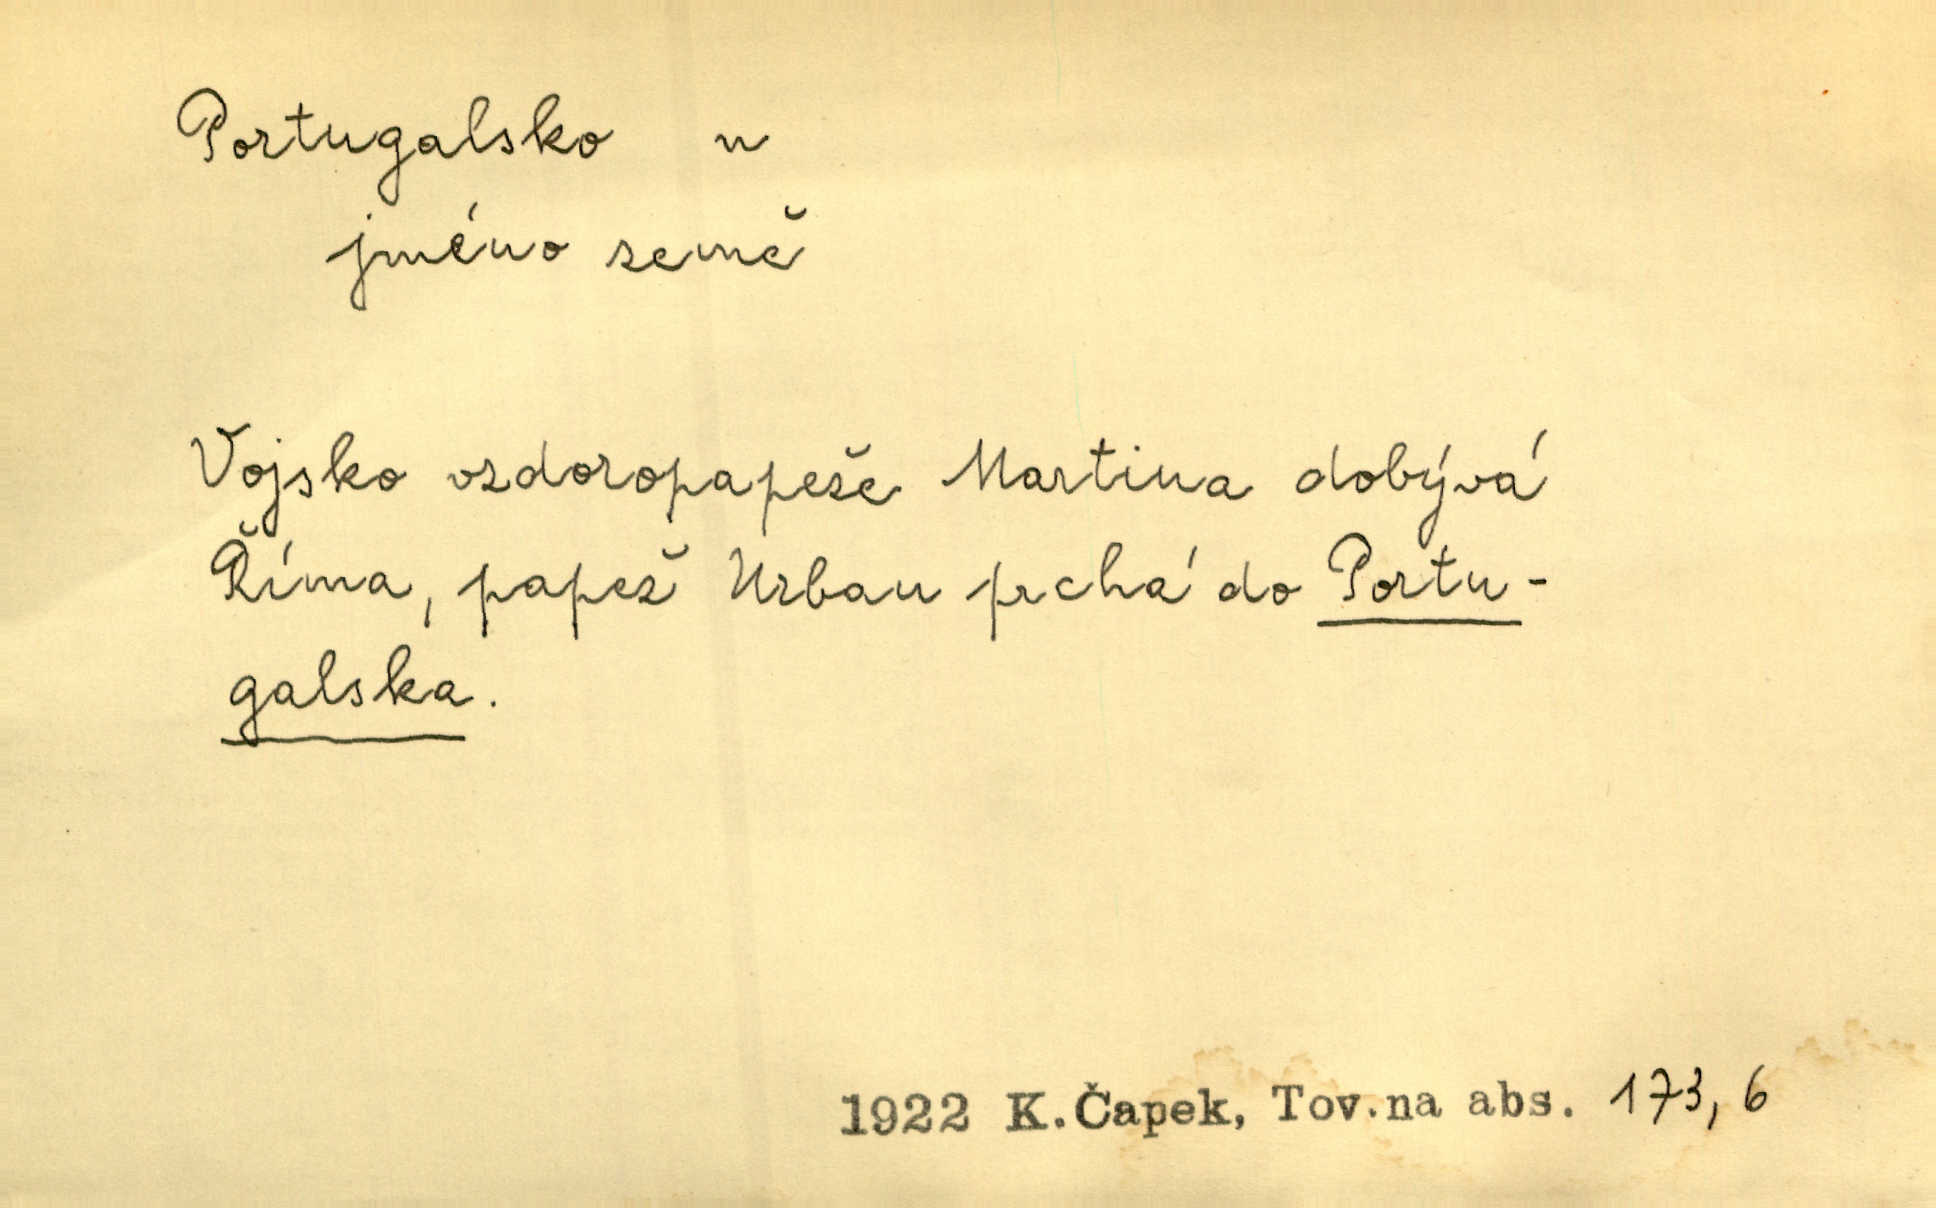 Portugalsko n
jméno země
Vojsko vzdoropapeže Martina dobývá
Říma, papež Urban prchá do Portu-
galska.
1922 K.Čapek, Tov.na abs. 173, 6